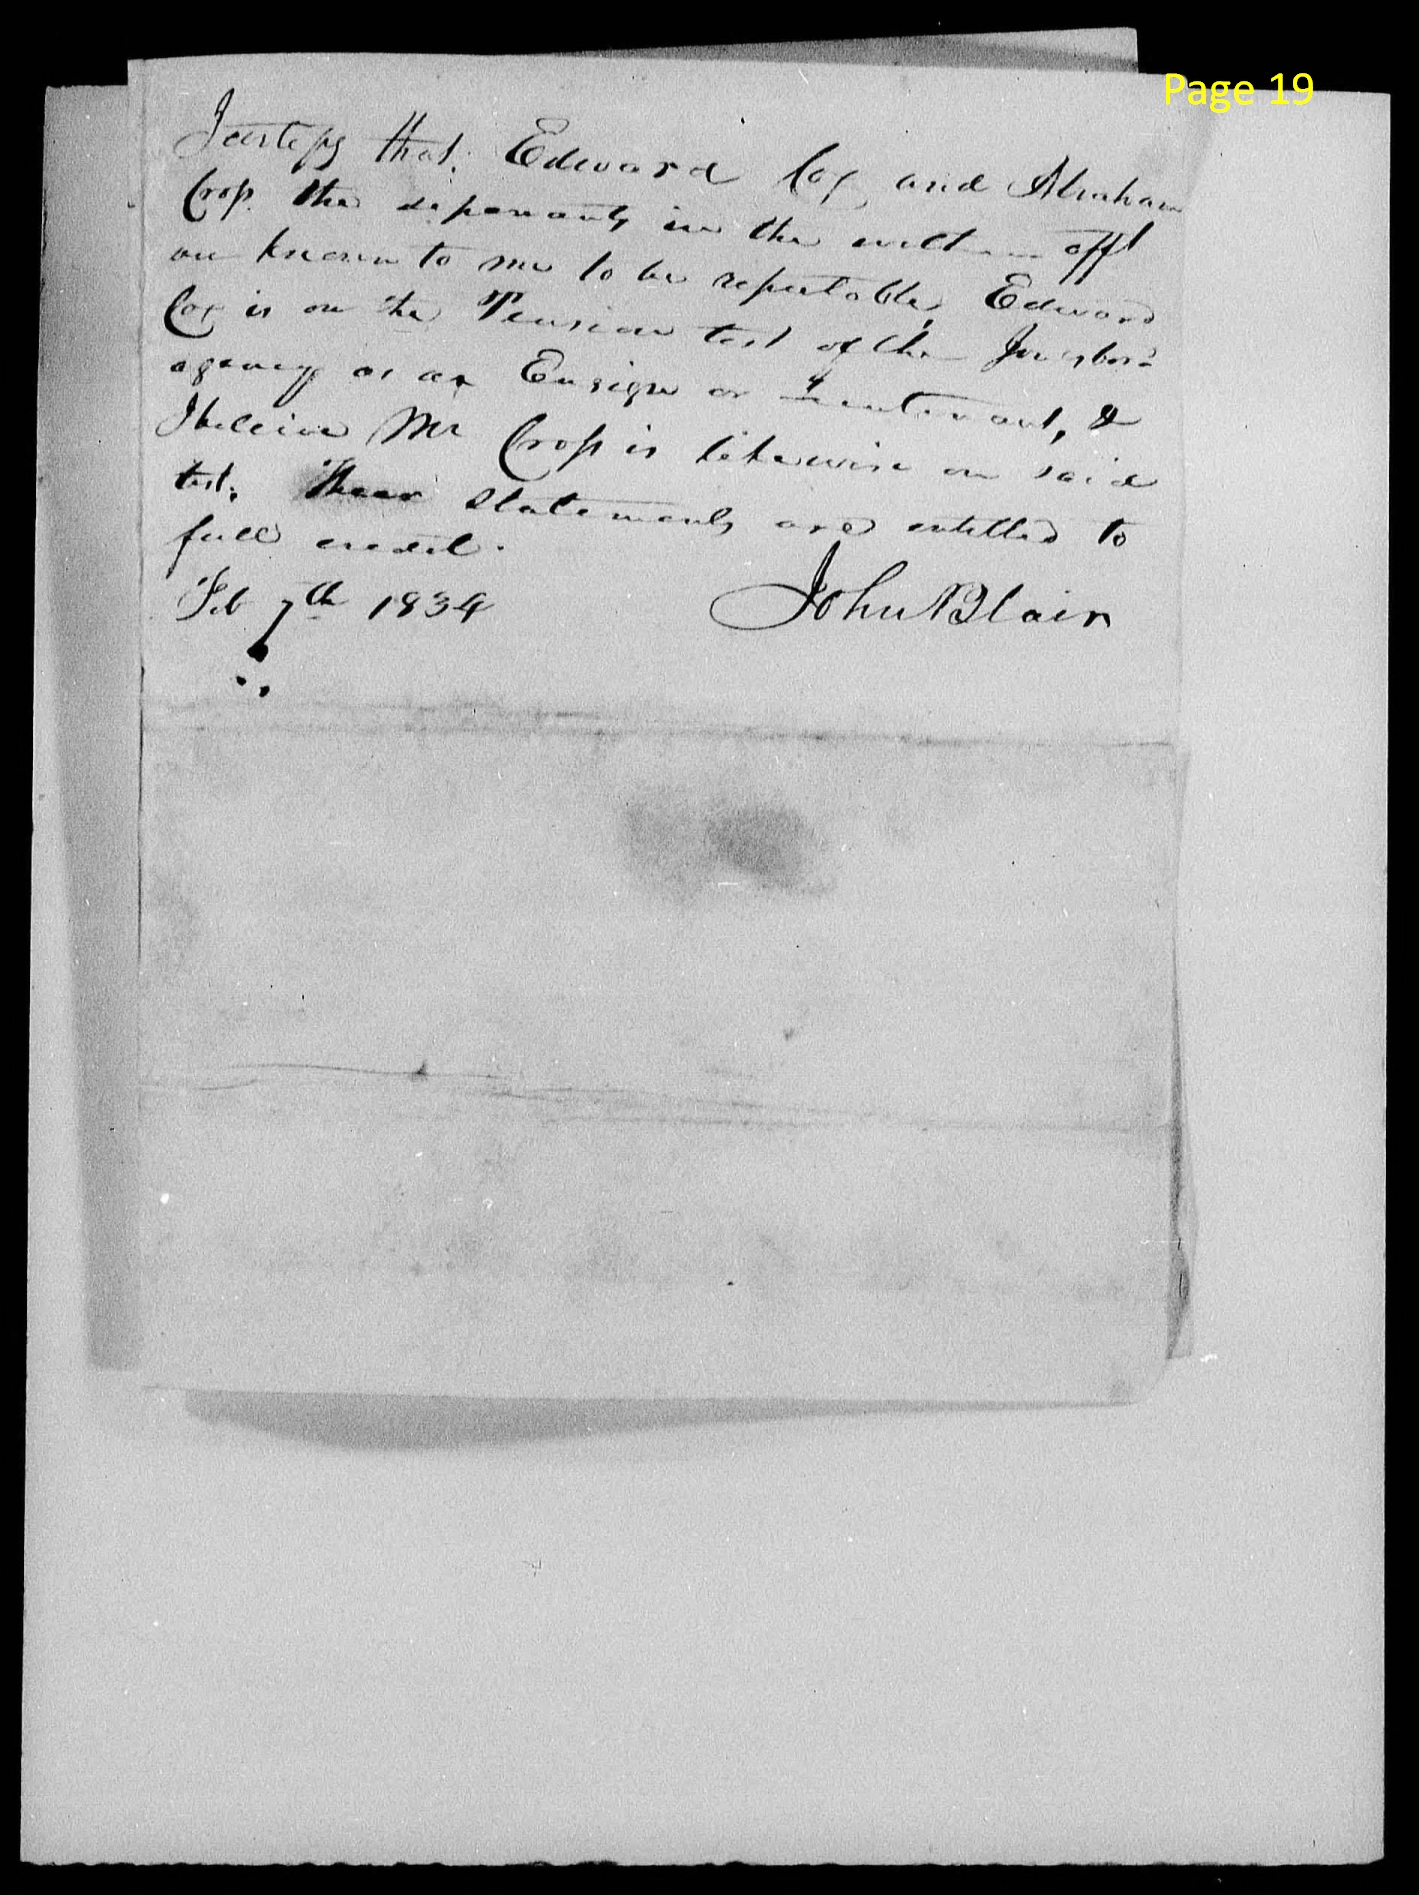 Page 19
I certify that Edward Cox and Abraham
Crop the deponents in the within afft
are known to me to be reputable, Edward
Cox is on the Pension list of the Jonesboro
agency as an Ensign or Lieutenant, &
I believe Mr Crop is likewise on said
list. Their statements are entitled to
full credit.
Feb 7th 1834 John Blair